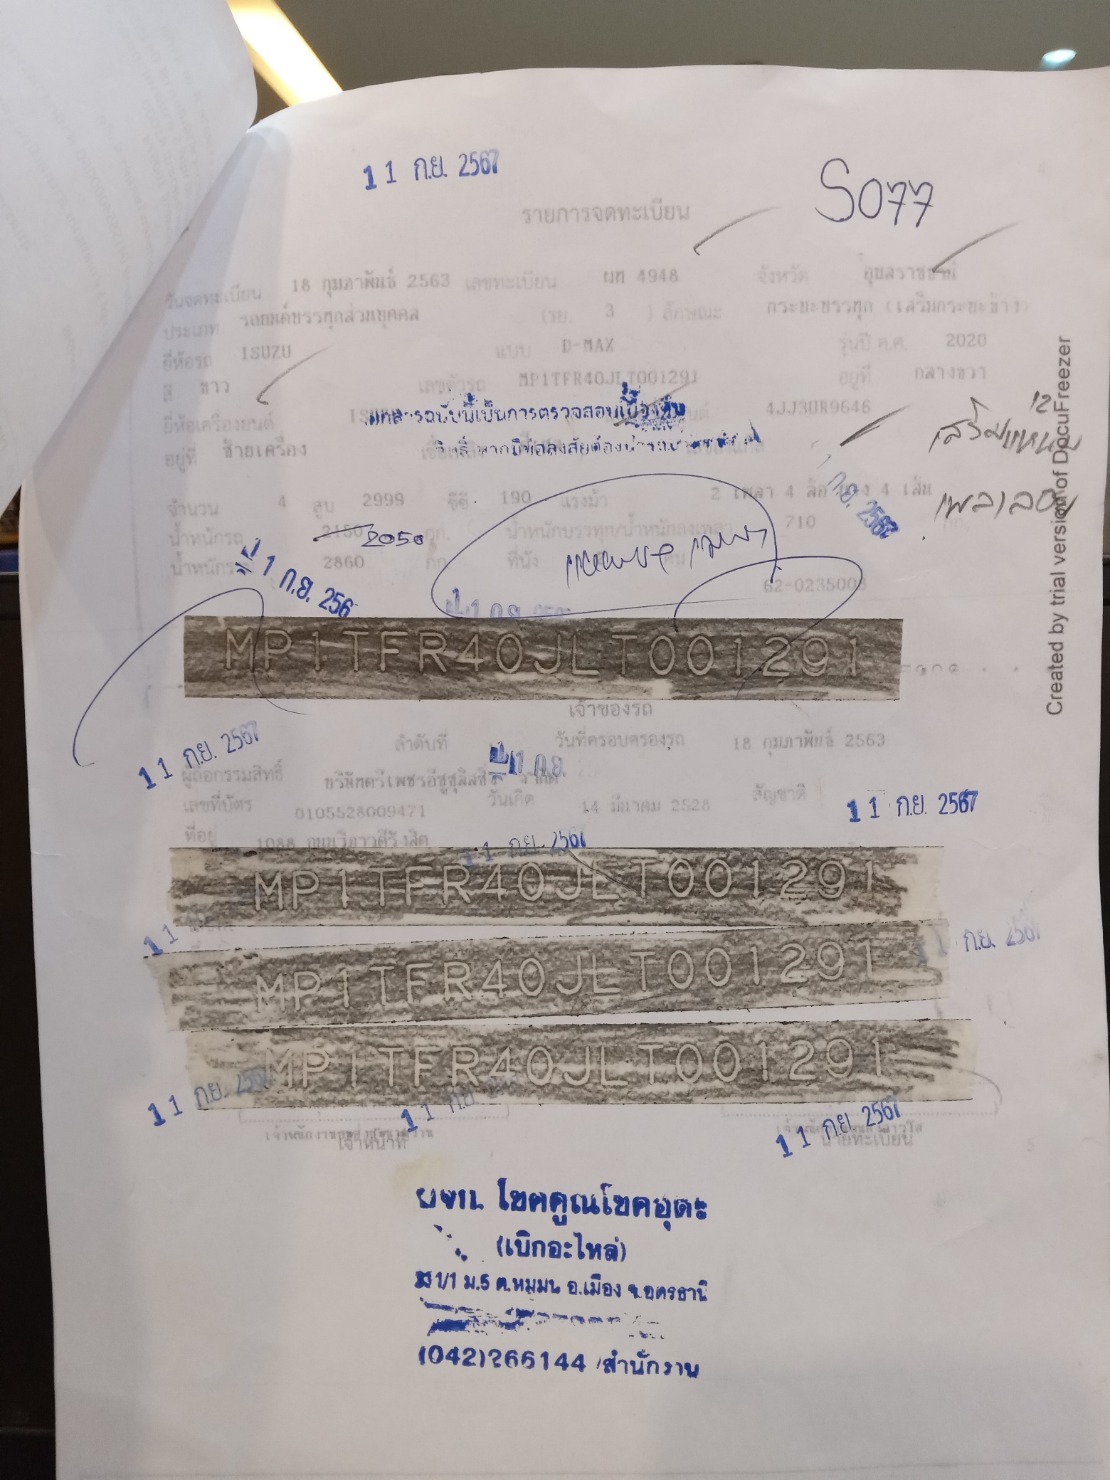 11 ก.ย. 2567
S077
รายการจดทะเบียน
วันจดทะเบียน 18 กุมภาพันธ์ 2563 เลขทะเบียน ผท 4948 จังหวัด อุบลราชธานี
ประเภท รถยนต์บรรทุกส่วนบุคคล (รย. 3 ) ลักษณะ กระบะบรรทุก (เสริมกระบะข้าง)
ยี่ห้อรถ ISUZU แบบ D-MAX รุ่นปี ค.ศ. 2020
สี ขาว เลขตัวรถ MP1TFR40JLT001291 อยู่ที่ กลางขวา
ยี่ห้อเครื่องยนต์ 4JJ3UR9646
เอกสารฉบับนี้เป็นการตรวจสอบเบื้องต้น
อยู่ที่ ซ้ายเครื่อง
เสริมแหนบ 12
เพลาลอย
จำนวน 4 สูบ 2999 ซีซี 190 แรงม้า 2 เพลา 4 ล้อ ยาง 4 เส้น
น้ำหนักรถ 2150 2050 กก. น้ำหนักบรรทุก/น้ำหนักลงเพลา 710 กก.
น้ำหนักรวม 2860 กก. ที่นั่ง คน
11 ก.ย. 2567
11 ก.ย. 256
62-0235003
11 ก.ย.
MP1TFR40JLT001291
Created by trial version of DocuFreezer
เจ้าของรถ
11 ก.ย. 2567
ลำดับที่ วันที่ครอบครองรถ 18 กุมภาพันธ์ 2563
ผู้ถือกรรมสิทธิ์ บริษัทตรีเพชรอีซูซุลิสซิ่ง จำกัด
11 ก.ย.
เลขที่บัตร 0105528009471 วันเกิด 14 มีนาคม 2528 สัญชาติ
11 ก.ย. 2567
ที่อยู่ 1088 ถนนวิภาวดีรังสิต
11 ก.ย. 2567
MP1TFR40JLT001291
11
11 ก.ย. 2567
MP1TFR40JLT001291
MP1TFR40JLT001291
11 ก.ย. 256
11 ก.ย.
11 ก.ย. 2567
เจ้าหน้าที่
นายทะเบียน
ผจก. โชคคูณโชคอุดร
(เบิกอะไหล่)
1/1 ม.5 ต.หมูม่น อ.เมือง จ.อุดรธานี
(042)266144 /สำนักงาน